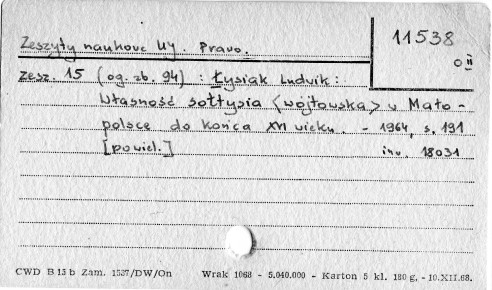 11538
O II
Zeszyty naukowe UJ. Prawo.
zesz. 15 (og. zb. 94) : Łysiak Ludwik :
Własność sołtysia <wójtowska> w Mało-
polsce do końca XVI wieku. - 1964, s. 191
[powiel.] inw. 18031
CWD B 15 b Zam. 1537/DW/On Wrak 1068 - 5.040.000 - Karton 5 kl. 180 g, - 10.XII.68.